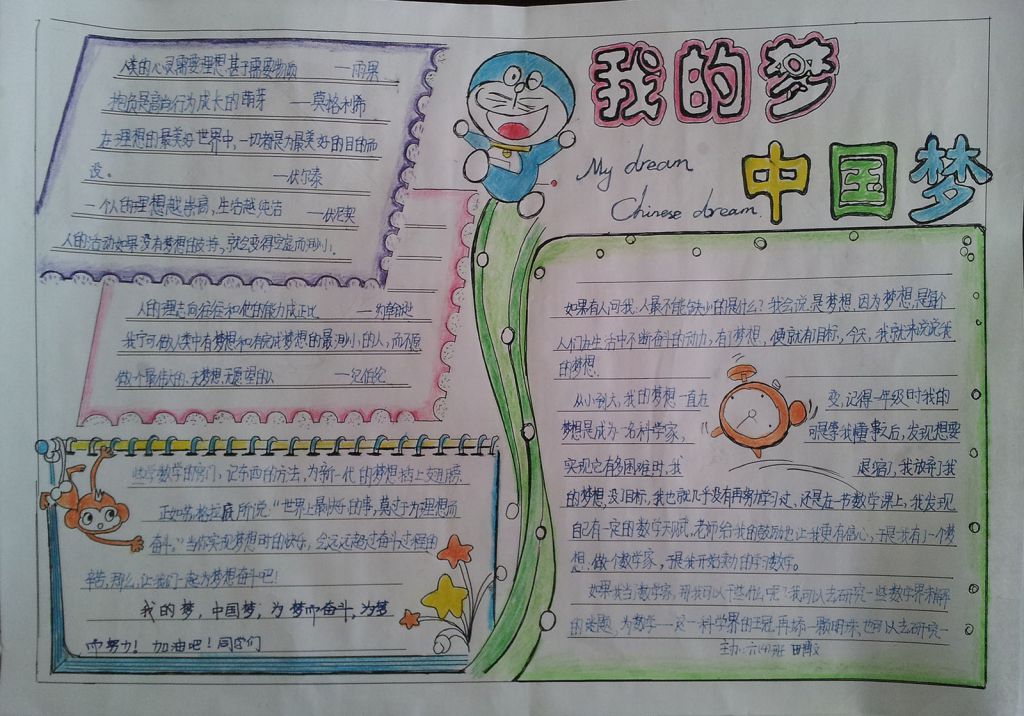 我的梦
中国梦
My dream
Chinese dream
人类的心灵需要理想甚于需要物质 ——雨果
抱负是高尚行为成长的萌芽 ——莫格利希
在理想的最美好世界中,一切都是为最美好的目的而
设。 ——伏尔泰
一个人的理想越崇高,生活越纯洁 ——伏尼契
人的活动如果没有梦想的鼓舞,就会变得空虚而渺小。
人的理志向往往和他的能力成正比 ——约翰逊
我宁可做人类中有梦想和有完成梦想的最渺小的人,而不愿
做个最伟大的、无梦想、无愿望的人 ——纪伯伦
如果有人问我,人最不能缺少的是什么?我会说,是梦想,因为梦想,是每个
人们在生活中不断奋斗的动力,有了梦想,便就有目标,今天,我就来说说我
的梦想。
从小到大,我的梦想一直在变,记得一年级时我的
梦想是成为一名科学家,可是等我懂事之后,发现想要
实现它有多困难时,我退缩了,我放弃了我
的梦想,没目标,我也就几乎没有再努力学习过,还是在一节数学课上,我发现
自己有一定的数学天赋,老师给我的鼓励也让我更有信心,于是我有了一个梦
想,做个数学家,于是我开始努力的学习数学。
如果我当了数学家,那我可以干些什么呢?我可以去研究一些数学界未解
的难题,为数学——这一科学界的王冠,再添一颗明珠,也可以去研究一
主办:六(4)班 田博文
些学数学的窍门,记东西的方法,为新一代的梦想插上交翅膀。
正如苏格拉底所说:“世界上最快乐的事,莫过于为理想而
奋斗。”当你实现梦想时的快乐,会远远超过奋斗过程的
辛苦,那么,让我们一起为梦想奋斗吧!
我的梦,中国梦,为梦而奋斗,为梦
而努力!加油吧!同学们